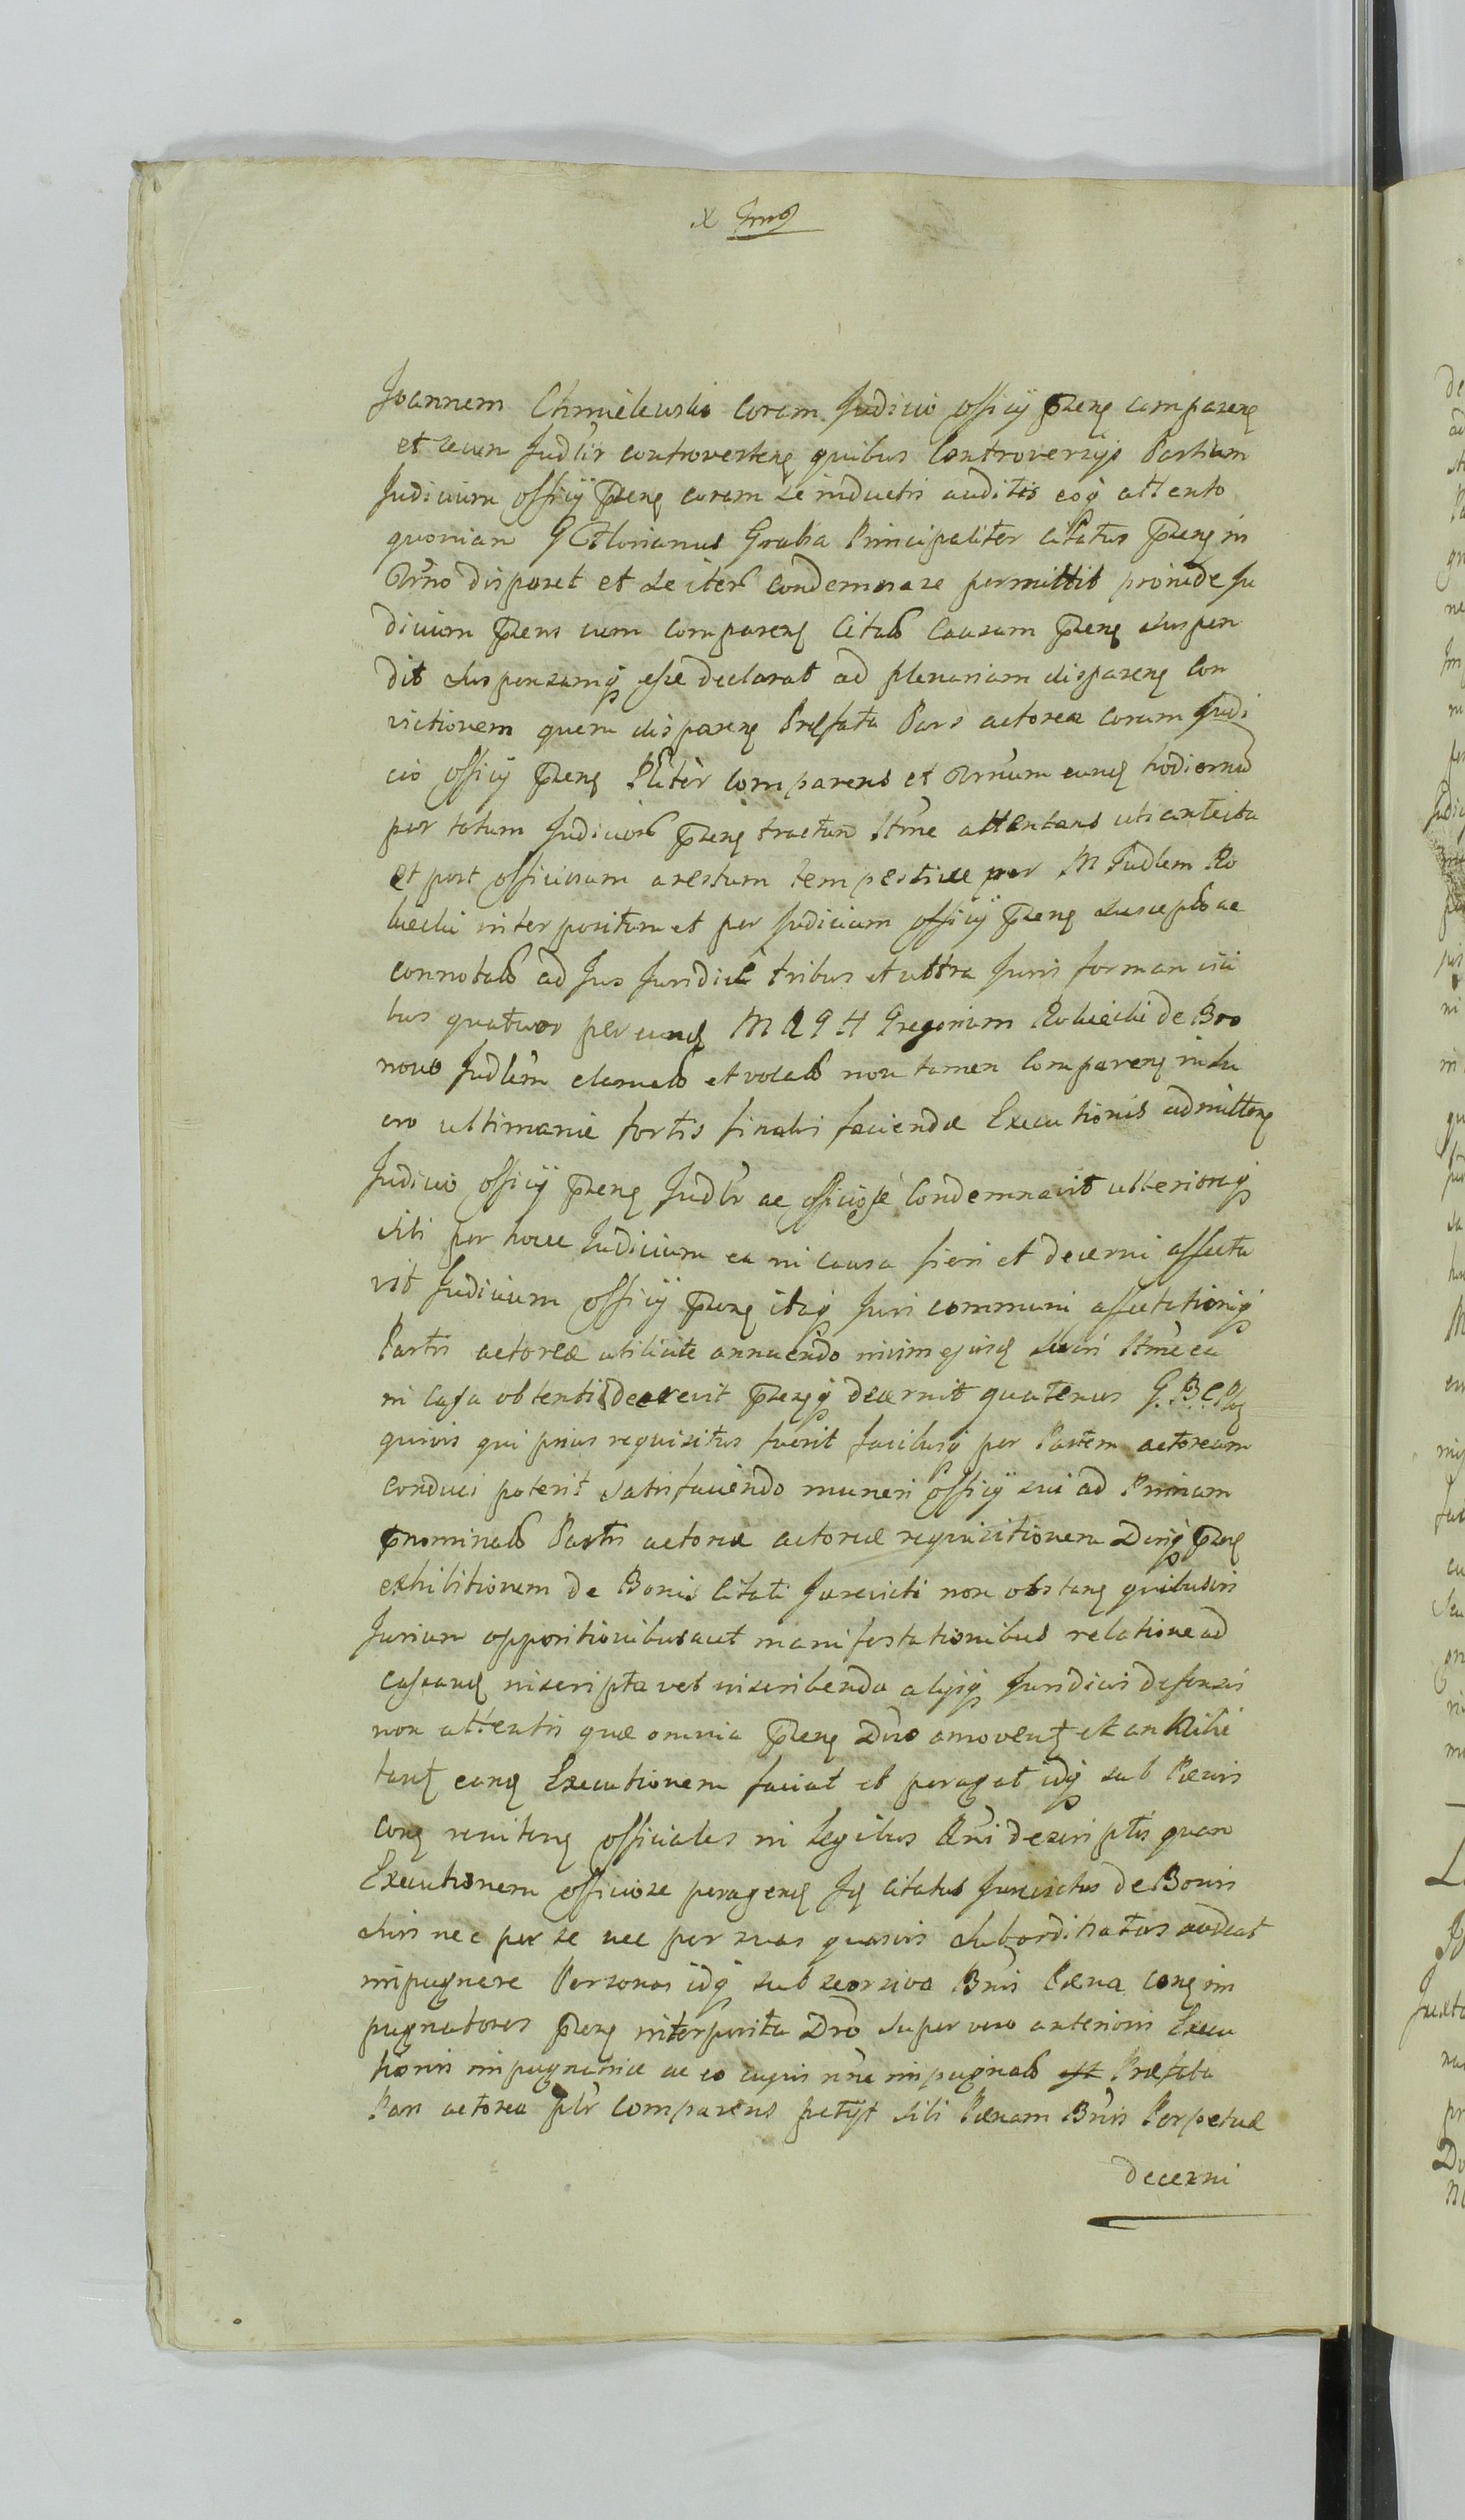 Joannem Chmielewski coram Judicio officij pren̄s comparen̄
et secum Judlr controverten̄ quibus Controversijs Partium
Judicium officij pren̄ coram se inductis auditis eoq attento
quoniam G Florianus Graba Principaliter citatus pren̄ in
Trn̄o disparet et se iter condemnare permittit proinde Ju
dicium prens cum comparen̄ citato causam pren̄ suspen
dit suspensamq esse declarat ad plenariam disparen̄ Con
victionem quem disparen̄ Præfata Pars actorea coram Judi
cio officij pren̄ Pliter comparens et Trn̄um eund hodiernū
per totum Judicior pren̄ tractum Itme attentans uti antecita
et post officiosum arestum tempestive per M Judlem Ro
kiecki interpositum et per Judicium officij pren̄ suscepto ac
connotato ad Jus Juridice tribus et ultra Juris forman vici
bus quatuor per eund M R G H Gregorium Rokiecki de Bro
novo Judlem clamato et vocato non tamen Comparen̄ in lu
cro ultimariæ sortis finalis faciendæ Executionis admitten̄
Judicio officij pren̄ Judlr ac officiose Condemnavit ulteriorq
sibi per hocce Judicium ea in causa fieri et decerni affecta
vit Judicium officij pren̄ itaq Juri communi affectationiq
Partis actoreæ utilicite annuendo nivim ejusd Juris Itme ea
in Causa obtenti decrevit pren̄q decernit quatenus G. B. C. P.
quivis qui prius requisitus fuerit faciliusq per Partem actoream
conduci poterit satisfaciendo muneri officij sui ad Primam
prnominato Partis actoreæ actoreæ requisitionem Driq pren̄
exhibitionem de Bonis Citati Jurevicti non obstan̄ quibusvis
Jurium oppositionibus aut manifestationibus relatione ad
causand inscripta vel inscribenda alijsq Juridicis defensis
non attentis quæ omnia pren̄ Dro amovent et annihili
tant eand Executionem faciat et peragat idq sub Pœnis
con̄ reniten̄ officiales in legibus Rni descriptis quam
Executionem officiose peragend Jd citatus Jurevictus de Bonis
suis nec per se nec per suas quasvis subordinatas audeat
impugnare Personas idq sub seorsiva Bnis Pœna con̄ im
pugnatores pren̄ interposita Dro super vero anterioris Execu
tionis impugnatione ac eo cujus nne impugnato est Præfata
Pars actorea plr comparens petijt sibi Pœnam Bnis Perpetuæ
decerni